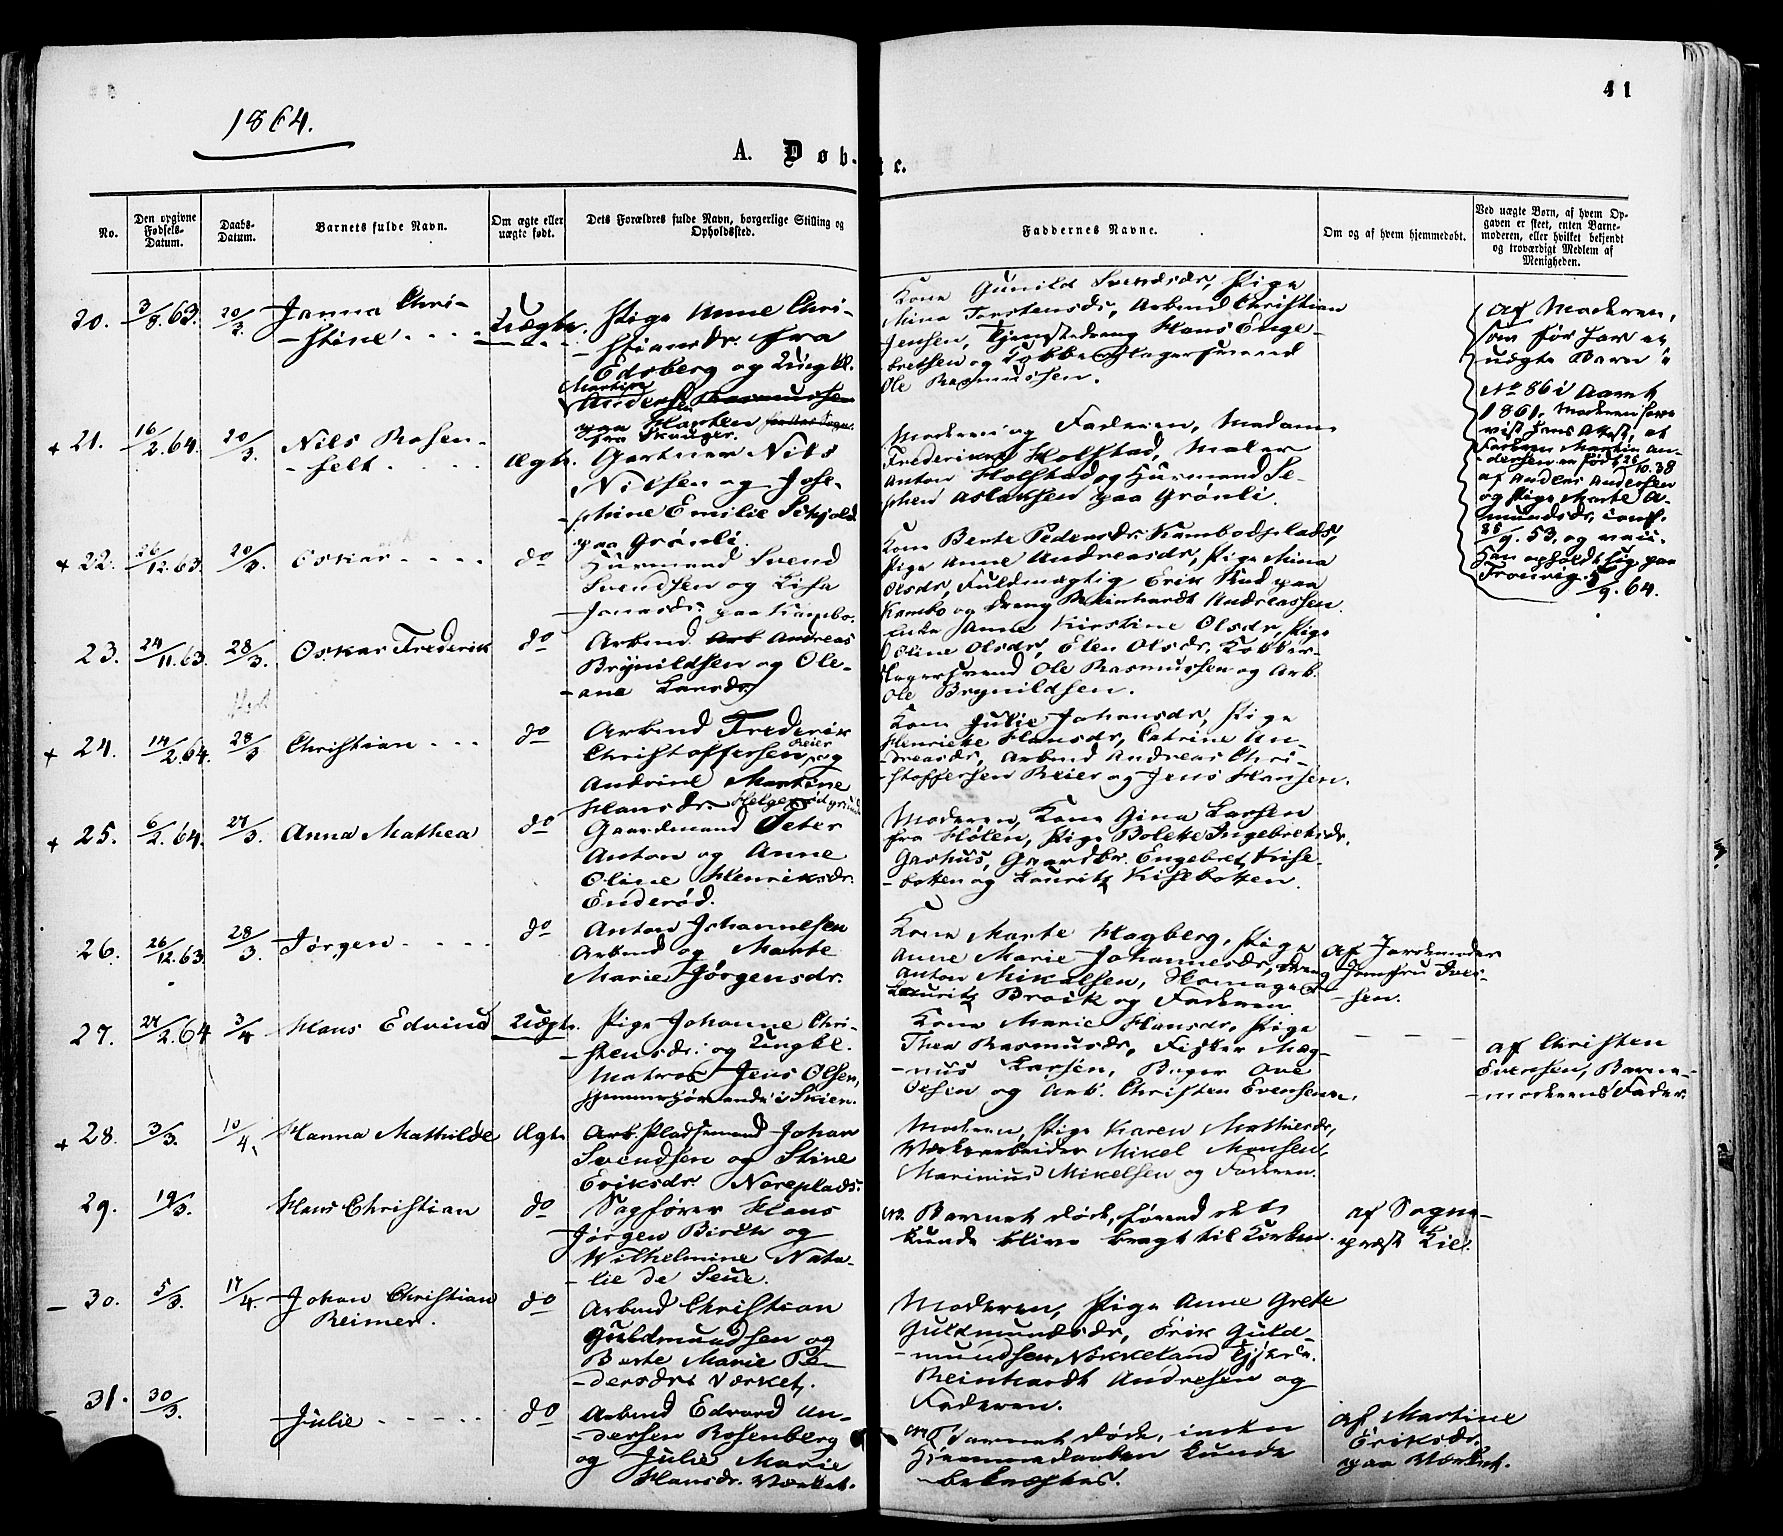 1864.
41
A. Døb-
te.
No.
Den opgivne Fødsels-Datum.
Daabs-Datum.
Barnets fulde Navn.
Om ægte eller uægte født.
Dets Forældres fulde Navn, borgerlige Stilling og Opholdssted.
Faddernes Navne.
Om og af hvem hjemmedøbt.
Ved uægte Børn, af hvem Opgaven er skeet, enten Barnemoderen, eller hvilket bekjendt og troværdigt Medlem af Menigheden.
20. 3/8. 63. 20/3. Janna Chri-
-stine. Uægte.
Pige Anne Chri-
-stiansdr. fra
Edsberg og Ungkl.
Martin
Anders Rasmussen
Kone Gunild Svendsdr, Pige
Mina Torstensdr, Arbmd Christian
Jensen, Tjenestedreng Hans Enge-
bretsen og Kobberslagersvend
Ole Rasmussen.
af Moderen,
som før har et
uægte Barn
No 86 i Aaret
1861. Moderen har
vist hans Attest, at
Farbren Martin An-
-dersen er født 26/10. 38
af Anders Andersen
og Pige Marte A-
mundsdr, conf.
25/9. 53, og vac.
Han opholdt sig paa
Tronvig. 5/9. 64.
+ 21. 16/2. 64. 20/3. Nils Rosen-
-felt. Ægte.
Gartner Nils
Nilsen og Jose-
-phine Emilie Schjold
paa Grønli.
Moderen og Faderen, Madam
Frederikke Holstad, Maler
Anton Holstad og Husmand Ste-
phen Aslaksen paa Grønli.
+ 22. 26/12. 63. 20/3. Oskar do
Husmand Svend
Svendsen og Lisa
Jonasdr. paa Kambo.
Kone Berte Pedersdr. Kambodplads,
Pige Anne Andreasdr, Pige Mina
Olsdr, Fuldmægtig Erik Rud paa
Kambo og Dreng Reinhardt Andreassen.
23. 24/11. 63. 28/3. Oskar Frederik do
Arbmd Andreas
Brynildsen og Ole-
-ane Larsdr
Enke Anne Kirstine Olsdr, Pige
Oline Olsdr, Elen Olsdr, Kobber-
slagersvend Ole Rasmussen og Arb.
Ole Brynildsen.
+ 24. 14/2. 64. 28/3 Christian do
Arbmd Frederik
Christoffersen Reier og
Andrine Martine
Hansdr
Kone Julie Johansdr, Pige
Henrikke Hansdr, Catrine An-
dreasdr, Arbmd Andreas Chri-
stoffersen Reier og Jens Hansen.
+ 25. 6/2. 64. 27/3. Anna Mathea do
Gaardmand Peter
Anton og Anne
Oline Henriksdr.
Enderød.
Moderen, Kone Gina Larsen
fra Hølen, Pige Bolette Ingebretsdr.
Gashus, Gaardbr. Engebret Kise-
-botten og Lauritz Kisebotten.
26. 26/12. 63. 28/3. Jørgen do
Anton Johannesen
Arbmd og Marte
Marie Jørgensdr.
Kone Marte Hagberg, Pige
Anne Marie Johannesdr, Dreng
Anton Mikalsen, Homager
Lauritz Brock og Faderen.
Af Jordemoder
Jomfru Iver-
-sen.
27. 27/2. 64 3/4 Hans Edvind Uægte.
Pige Johanne Chri-
-stensdr. og Ungkl.
Matros Jens Olsen,
hjemmehørende i Skien.
Kone Marie Hansdr, Pige
Thea Rasmusdr, Fisker Mag-
-nus Larsen, Bager Ove
Olsen og Arb. Christen Evensen.
af Christen
Evensen, Barne-
-moderens Fader.
+ 28. 3/3. 10/4. Hanna Mathilde Ægte
Arb. Pladsemand Johan
Svendsen og Stine
Eriksdr. Noreplads.
Moderen, Pige Karen Mathisdr,
Værksarbeider Mikel Monsen,
Marinius Mikelsen og Faderen.
29. 19/3. Hans Christian do
Sagfører Hans
Jørgen Birch og
Wilhelmine Nata-
-lie de Seue.
NB. Barnet døde, førend det
kunde blive bragt til Kirken.
af Sogne-
præst Kiel.
- 30. 5/3. 17/4. Johan Christian
Reimer. do
Arbmd Christian
Guldmundsen og
Berte Marie Pe-
-dersdr Værket.
Moderen, Pige Anne Grete
Guldmundsdr, Erik Guld-
-mundsen Nokkeland
Reinhardt Andresen og
Faderen.
- 31. 30/3. Julie do
Arbmd Edvard An-
dersen Rosenberg
og Julie Marie
Hansdr. Værket.
NB Barnet døde, inden
Hjemmedaaben kunde
bekræftes.
af Martine
Eriksdr.
paa Værket.